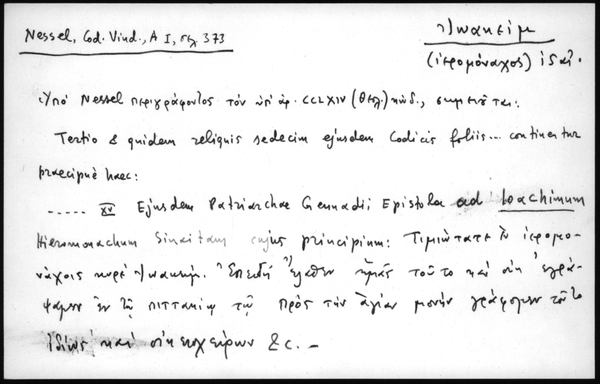 Nessel, Cod. Vind., A I, σελ. 373
Ἰωακείμ
(ἱερομόναχος)
Ὑπὸ Nessel περιγράφοντος τὸν ὑπ' ἀρ. CCLXIV (θεολ.) κώδ., σημειοῦται:
Tertio & quidem reliquis sedecim ejusdem Codicis foliis... continentur
praecipuè haec:
..... XV Ejusdem Patriarchae Gennadii Epistola ad Ioachimum
Hieromonachum Sinaitam cujus principium: Τιμιώτατε ἐν ἱερομο-
νάχοις κυρὲ Ἰωακείμ. Ἐπειδὴ ἔλαθεν ἡμᾶς τοῦτο καὶ οὐκ ἐγρά-
ψαμεν ἐν τῷ πιττακίῳ τῷ πρὸς τὴν ἁγίαν μονὴν γράφομεν τοῦτο
ἰδίως καὶ &c. –